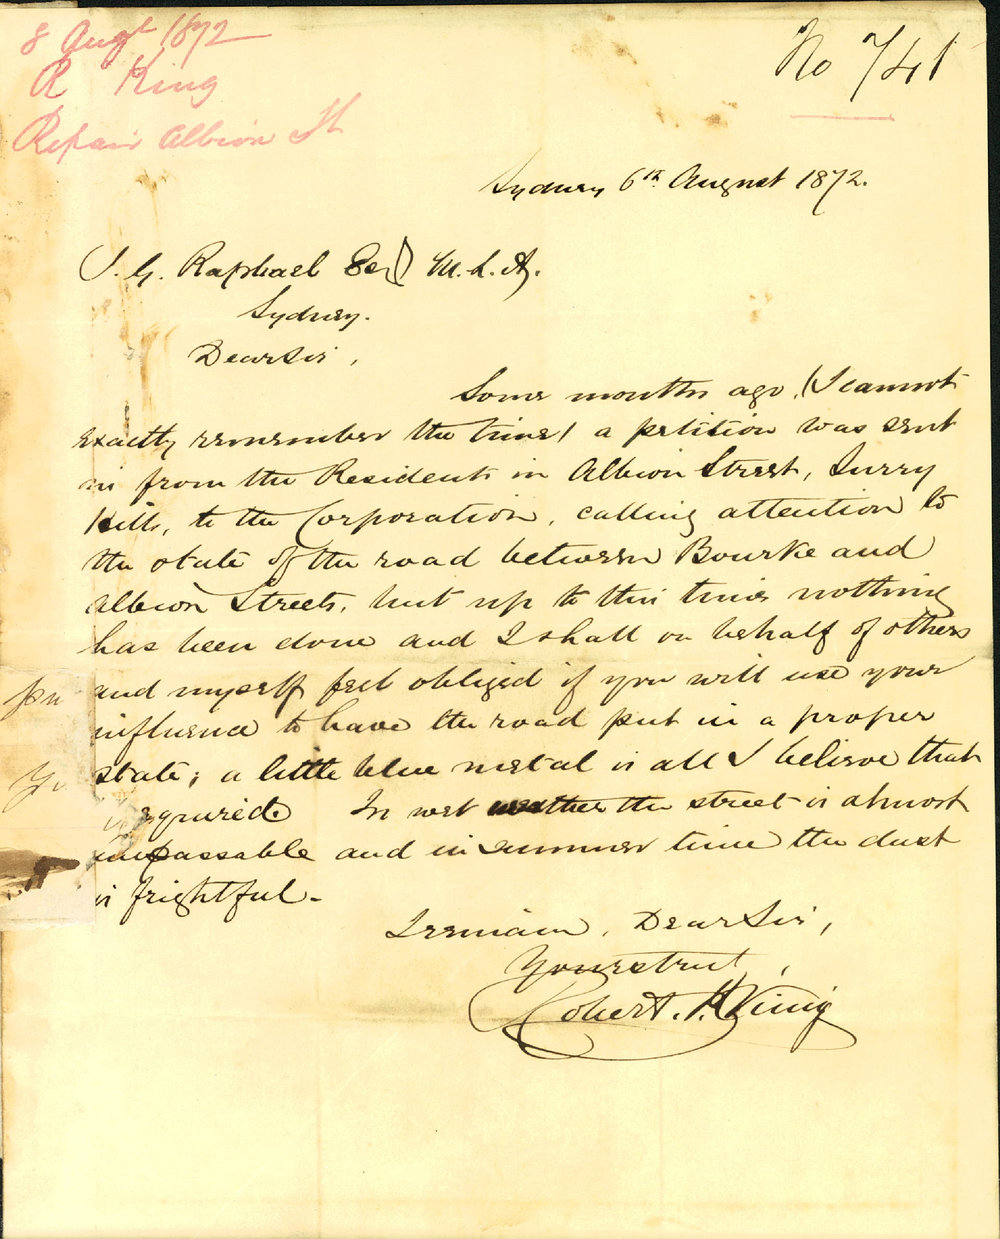 8 Augt 1872
R King
Repair Albion St
No 741
Sydney 6th August 1872.
J. G. Raphael Esq M.L.A.
Sydney.
Dear Sir,
Some months ago, (I cannot
exactly remember the time) a petition was sent
in from the Residents in Albion Street, Surry
Hills, to the Corporation, calling attention to
the state of the road between Bourke and
Albion Streets, but up to this time nothing
has been done and I shall on behalf of others
and myself feel obliged if you will use your
influence to have the road put in a proper
state; a little blue metal is all I believe that
is required. In wet weather the street is almost
impassable and in summer time the dust
is frightful.
I remain, Dear Sir,
Yours truly,
Robert. H. King